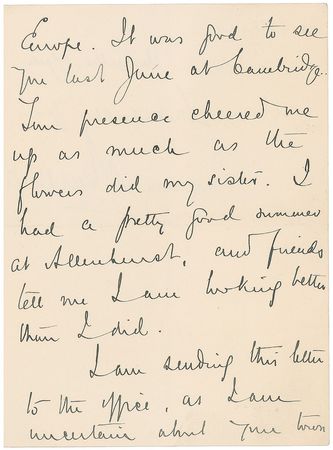 Europe. It was good to see
you last June at Cambridge.
Your presence cheered me
up as much as the
flowers did my sister. I
had a pretty good summer
at Allenhurst, and friends
tell me I am looking better
than I did.
I am sending this letter
to the office, as I am
uncertain about your town